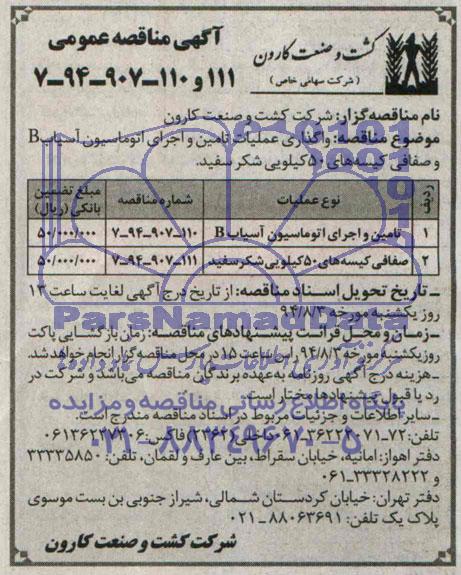 کشت و صنعت کارون
(شرکت سهامی خاص)
آگهی مناقصه عمومی
۱۱۱ و ۱۱۰-۹۰۷-۹۴-۷
نام مناقصه‌گزار: شرکت کشت و صنعت کارون
موضوع مناقصه: واگذاری عملیات تامین و اجرای اتوماسیون آسیاب B
و صفافی کیسه‌های ۵۰کیلویی شکر سفید.
ردیف نوع عملیات شماره مناقصه مبلغ تضمین بانکی (ریال)
۱ تامین و اجرای اتوماسیون آسیاب B ۱۱۰-۹۰۷-۹۴-۷ ۵۰/۰۰۰/۰۰۰
۲ صفافی کیسه‌های ۵۰کیلویی شکر سفید ۱۱۱-۹۰۷-۹۴-۷ ۵۰/۰۰۰/۰۰۰
ـ تاریخ تحویل اسناد مناقصه: از تاریخ درج آگهی لغایت ساعت ۱۳
روز یکشنبه مورخه ۹۴/۸/۳
ـ زمان و محل قرائت پیشنهادهای مناقصه: زمان بازگشایی پاکت
روز یکشنبه مورخه ۹۴/۸/۲ راس ساعت ۱۵ در محل مناقصه‌گزار انجام خواهد شد.
ـ هزینه درج آگهی روزنامه به عهده برندگان مناقصه می‌باشد و شرکت در
رد یا قبول پیشنهادها مختار است.
ـ سایر اطلاعات و جزئیات مربوط در اسناد مناقصه مندرج است.
دفتر اهواز: امانیه، خیابان سقراط، بین عارف و لقمان، تلفن: ۳۳۳۳۵۸۵۰
و ۳۳۳۲۸۲۲۲-۰۶۱
دفتر تهران: خیابان کردستان شمالی، شیراز جنوبی بن بست موسوی
پلاک یک تلفن: ۸۸۰۶۳۶۹۱-۰۲۱
شرکت کشت و صنعت کارون
ParsNamadData
پایگاه اطلاع رسانی مناقصه و مزایده
۰۲۱-۸۸۳۴۹۶۷۰-۵